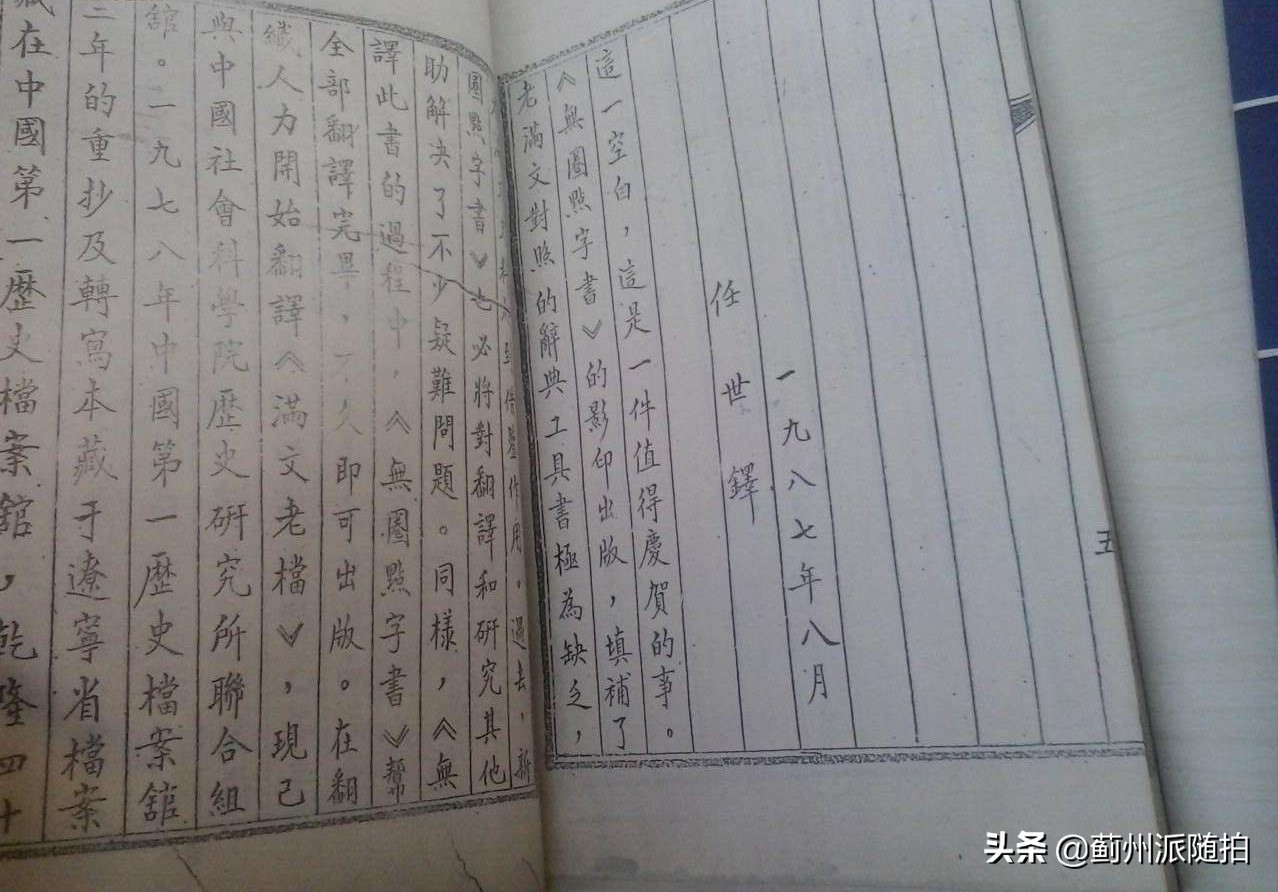 藏在中國第一歷史檔案館，乾隆四十
二年的重抄及轉寫本藏于遼寧省檔案
館。一九七八年中國第一歷史檔案館
與中國社會科學院歷史研究所聯合組
織人力開始翻譯《滿文老檔》，現已
全部翻譯完畢，不久即可出版。在翻
譯此書的過程中，《無圈點字書》幫
助解決了不少疑難問題。同樣，《無
圈點字書》也必將對翻譯和研究其他
借鑒作用。過去，新
老滿文對照的辭典工具書極為缺乏，
《無圈點字書》的影印出版，填補了
這一空白，這是一件值得慶賀的事。
任世鐸
一九八七年八月
五
头条 @蓟州派随拍